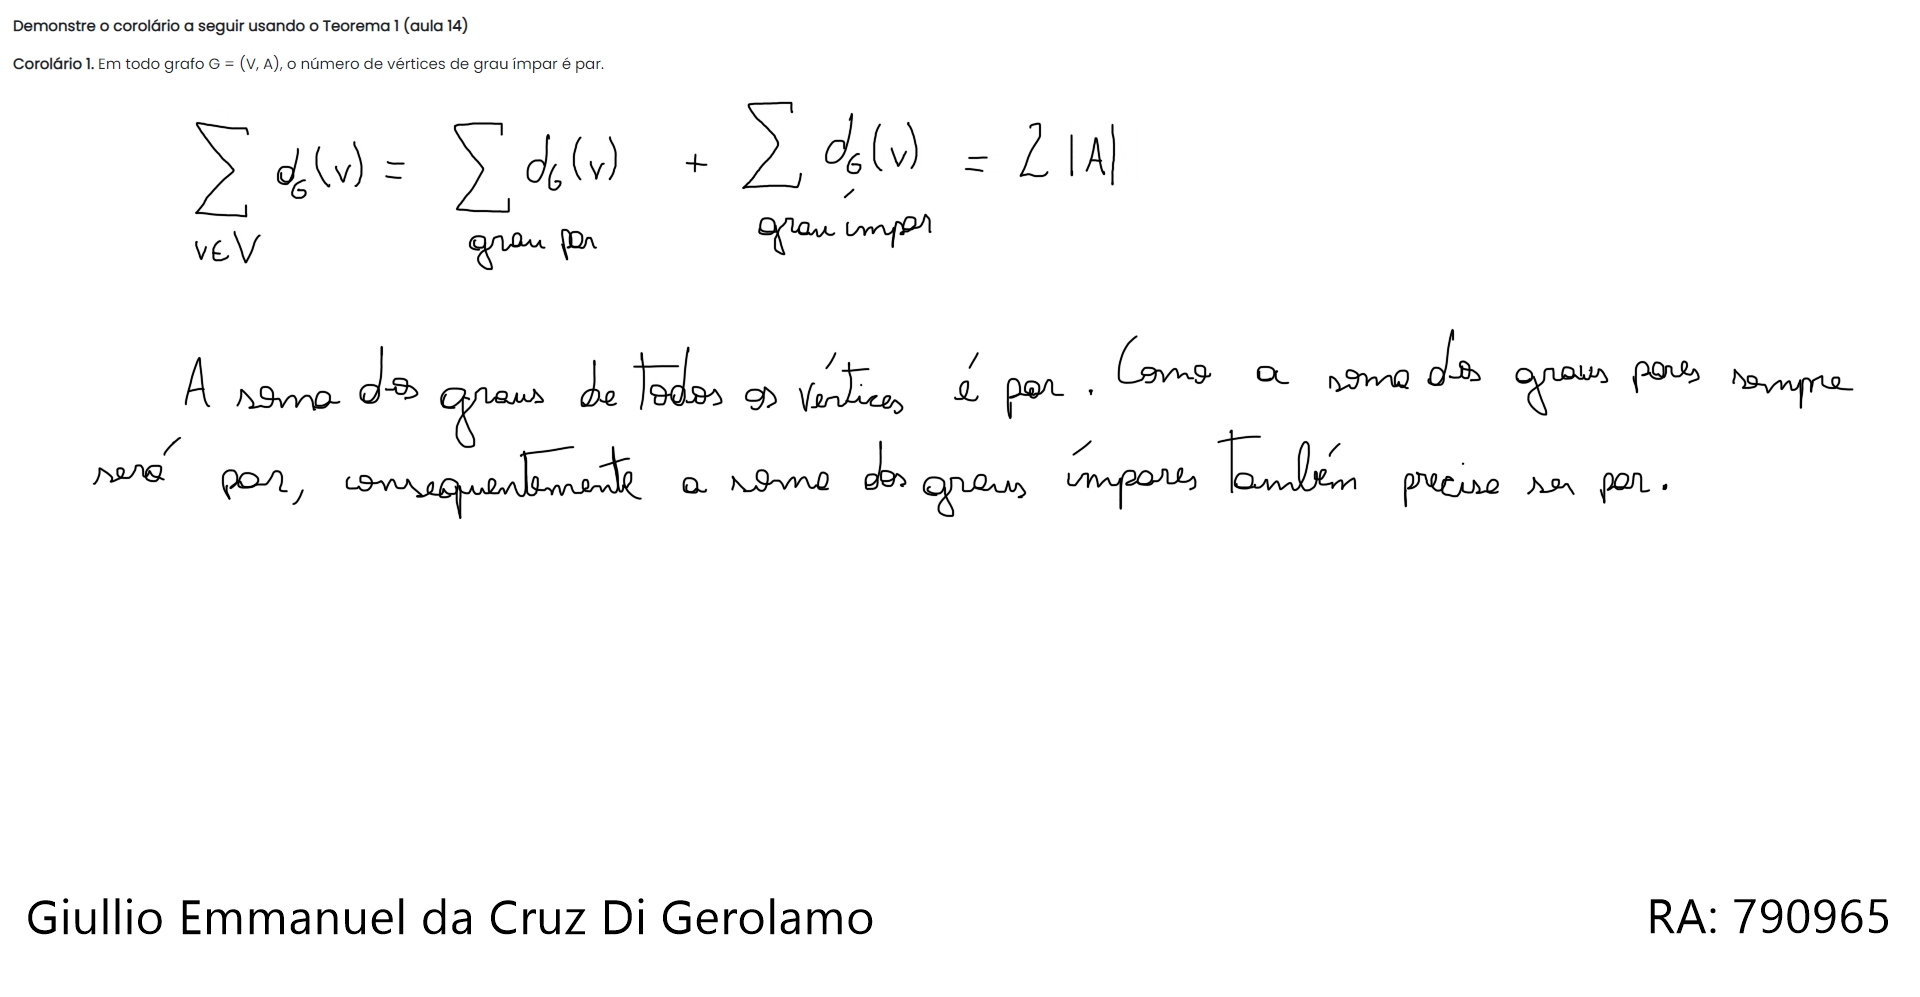 Demonstre o corolário a seguir usando o Teorema 1 (aula 14)
Corolário 1. Em todo grafo G = (V, A), o número de vértices de grau ímpar é par.
∑ d_G(v) = ∑ d_G(v) + ∑ d_G(v) = 2|A|
v∈V grau par grau ímpar
A soma dos graus de todos os vértices é par. Como a soma dos graus pares sempre
será par, consequentemente a soma dos graus ímpares também precisa ser par.
Giullio Emmanuel da Cruz Di Gerolamo RA: 790965